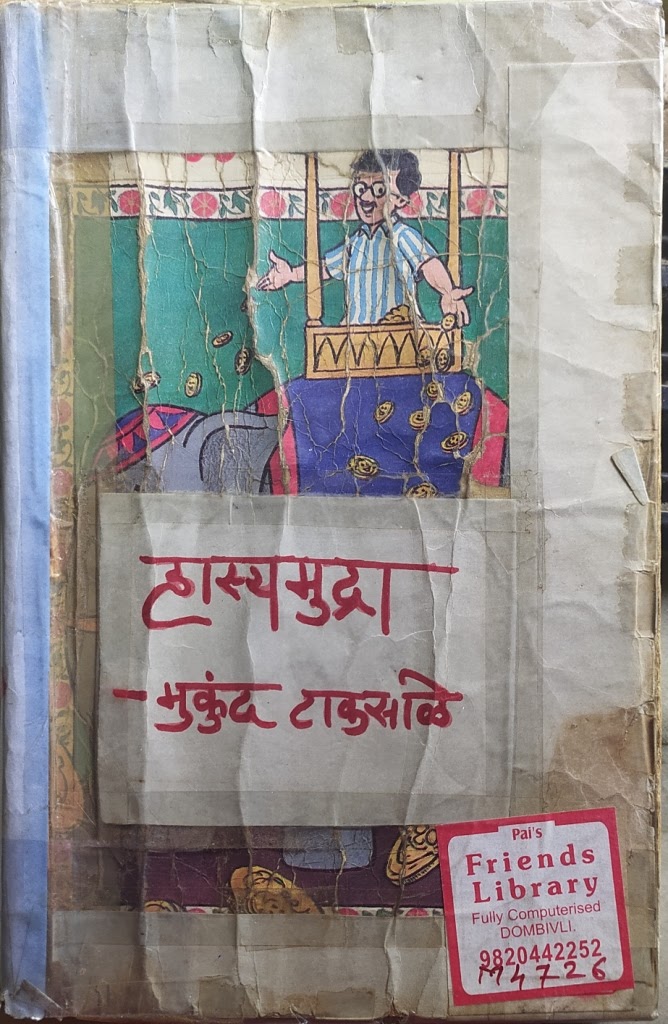 हास्यमुद्रा
- मुकुंद टाकसाळे
Pai's
Friends
Library
Fully Computerised
DOMBIVLI.
9820442252
M4726